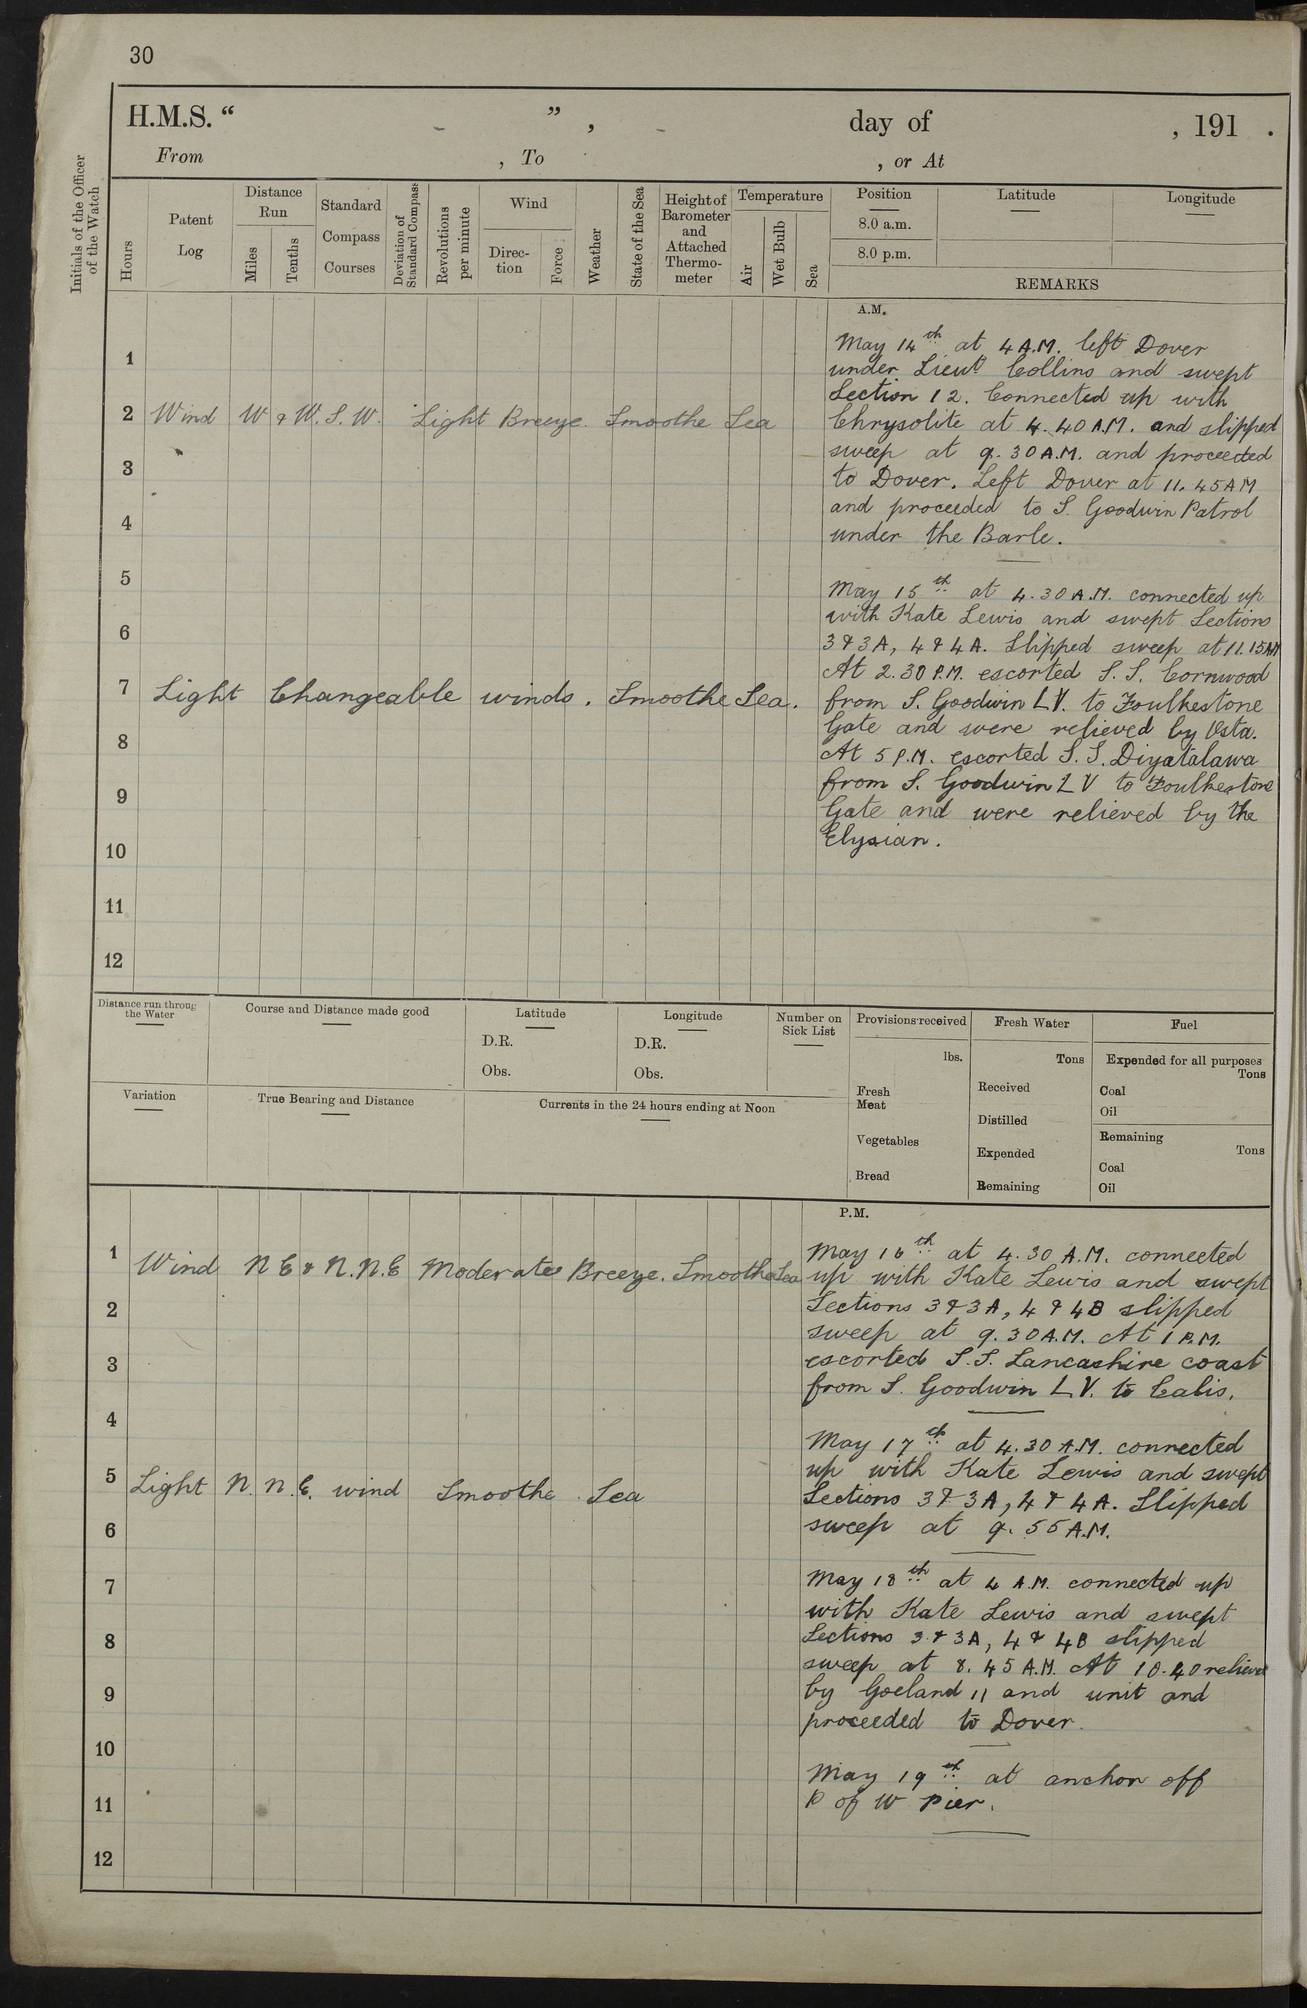 30
H.M.S. “ ” , day of , 191 .
From , To , or At
Initials of the Officer of the Watch
Hours
Patent Log
Distance Run
Miles
Tenths
Standard Compass Courses
Deviation of Standard Compass
Revolutions per minute
Wind
Direc-tion
Force
Weather
State of the Sea
Height of Barometer and Attached Thermo-meter
Temperature
Air
Wet Bulb
Sea
Position
8.0 a.m.
8.0 p.m.
Latitude
Longitude
REMARKS
A.M.
1
2 Wind W & W.S.W. Light Breeze Smoothe Sea
3
4
5
6
7 Light Changeable winds. Smoothe Sea.
8
9
10
11
12
May 14th at 4 A.M. left Dover
under Lieut Collins and swept
Section 12. Connected up with
Chrysolite at 4.40 A.M. and slipped
sweep at 9.30 A.M. and proceeded
to Dover. Left Dover at 11.45 AM
and proceeded to S. Goodwin Patrol
under the Barle.
May 15th at 4.30 A.M. connected up
with Kate Lewis and swept Sections
3 & 3A, 4 & 4A. Slipped sweep at 11.15 AM
At 2.30 P.M. escorted S.S. Cornwood
from S. Goodwin L V. to Foulkestone
Gate and were relieved by Vsta.
At 5 P.M. escorted S.S. Diyatalawa
from S. Goodwin L V to Foulkestone
Gate and were relieved by the
Elysian.
Distance run throug the Water
Course and Distance made good
Latitude
D.R.
Obs.
Longitude
D.R.
Obs.
Number on Sick List
Provisions received
lbs.
Fresh Meat
Vegetables
Bread
Fresh Water
Tons
Received
Distilled
Expended
Remaining
Fuel
Expended for all purposes
Tons
Coal
Oil
Remaining
Tons
Coal
Oil
Variation
True Bearing and Distance
Currents in the 24 hours ending at Noon
P.M.
1 Wind N E & N.N.E Moderate Breeze. Smoothe Sea
2
3
4
5 Light N. N. E. wind Smoothe Sea
6
7
8
9
10
11
12
May 16th at 4.30 A.M. connected
up with Kate Lewis and swept
Sections 3 & 3A, 4 & 4B slipped
sweep at 9.30 A.M. At 1 P.M.
escorted S.S. Lancashire coast
from S. Goodwin L V. to Calis.
May 17th at 4.30 A.M. connected
up with Kate Lewis and swept
Sections 3 & 3A, 4 & 4A. Slipped
sweep at 9.55 A.M.
May 18th at 4 A.M. connected up
with Kate Lewis and swept
Sections 3 & 3A, 4 & 4B slipped
sweep at 8.45 A.M. At 10.40 relieved
by Goeland 11 and unit and
proceeded to Dover.
May 19th at anchor off
P of W Pier.